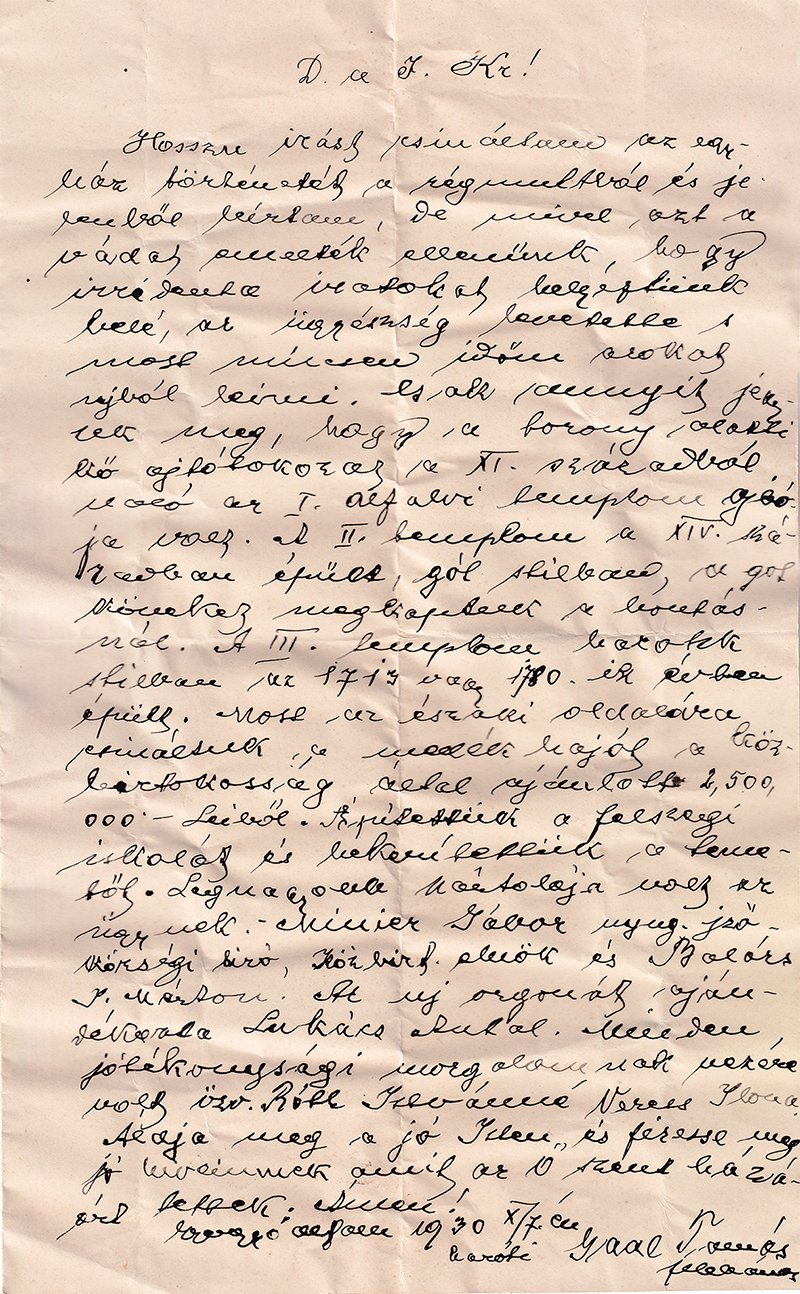 D. a J. Kr!
Hosszu irást csináltam az egy-
ház történetét a régmultból és je-
lenből leirtam, de mivel azt a
vádat emelték ellenünk, hogy
irrédenta iratokat helyeztünk
belé, az ügyészség levetette s
most nincsen időm azokat
ujból leirni. Csak annyit jegy-
zek meg, hogy a torony alatti
kő ajtótokozat a XI. századból
való az I. alfalvi templom ajtó-
ja volt. A II. templom a XIV. szá-
zadban épült, gót stilban, a gót
köveket megkaptuk a bontás-
nál. A III. templom barokk
stilban az 1713 vagy 1780. ik évben
épült. Most az északi oldalára
csináltuk a mellék hajót a köz-
birtokosság által ajánlott 2,500,
000 - Leiből. Épitettük a felszegi
iskolát és bekeritettük a teme-
tőt. Legnagyobb pártolója volt az
ügynek. - Minier Gábor nyug. jző
községi biró, Közbirt. elnök és Balázs
P. Márton. Az uj orgonát aján-
dékozta Lukács Antal. Minden
jótékonysági mozgalomnak vezére
volt özv. Róth Istvánné Veress Ilona.
Áldja meg a jó Isten, és fizesse meg
jó hiveinnek amit az Ő szent házá-
ért tettek. Ámen!
Gyergyóalfalu 1930 X/7. én
baróti Gaál Tamás
plébános